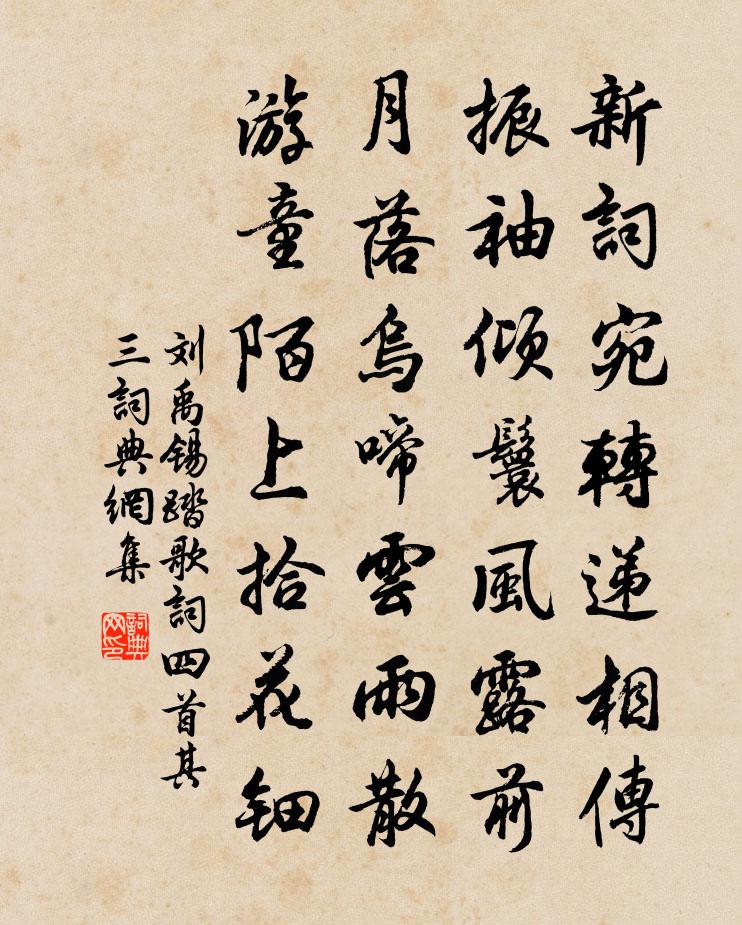 新詞宛轉遞相傳
振袖傾鬟風露前
月落烏啼雲雨散
游童陌上拾花鈿
刘禹锡踏歌詞四首其
三詞典網集
詞典
网印